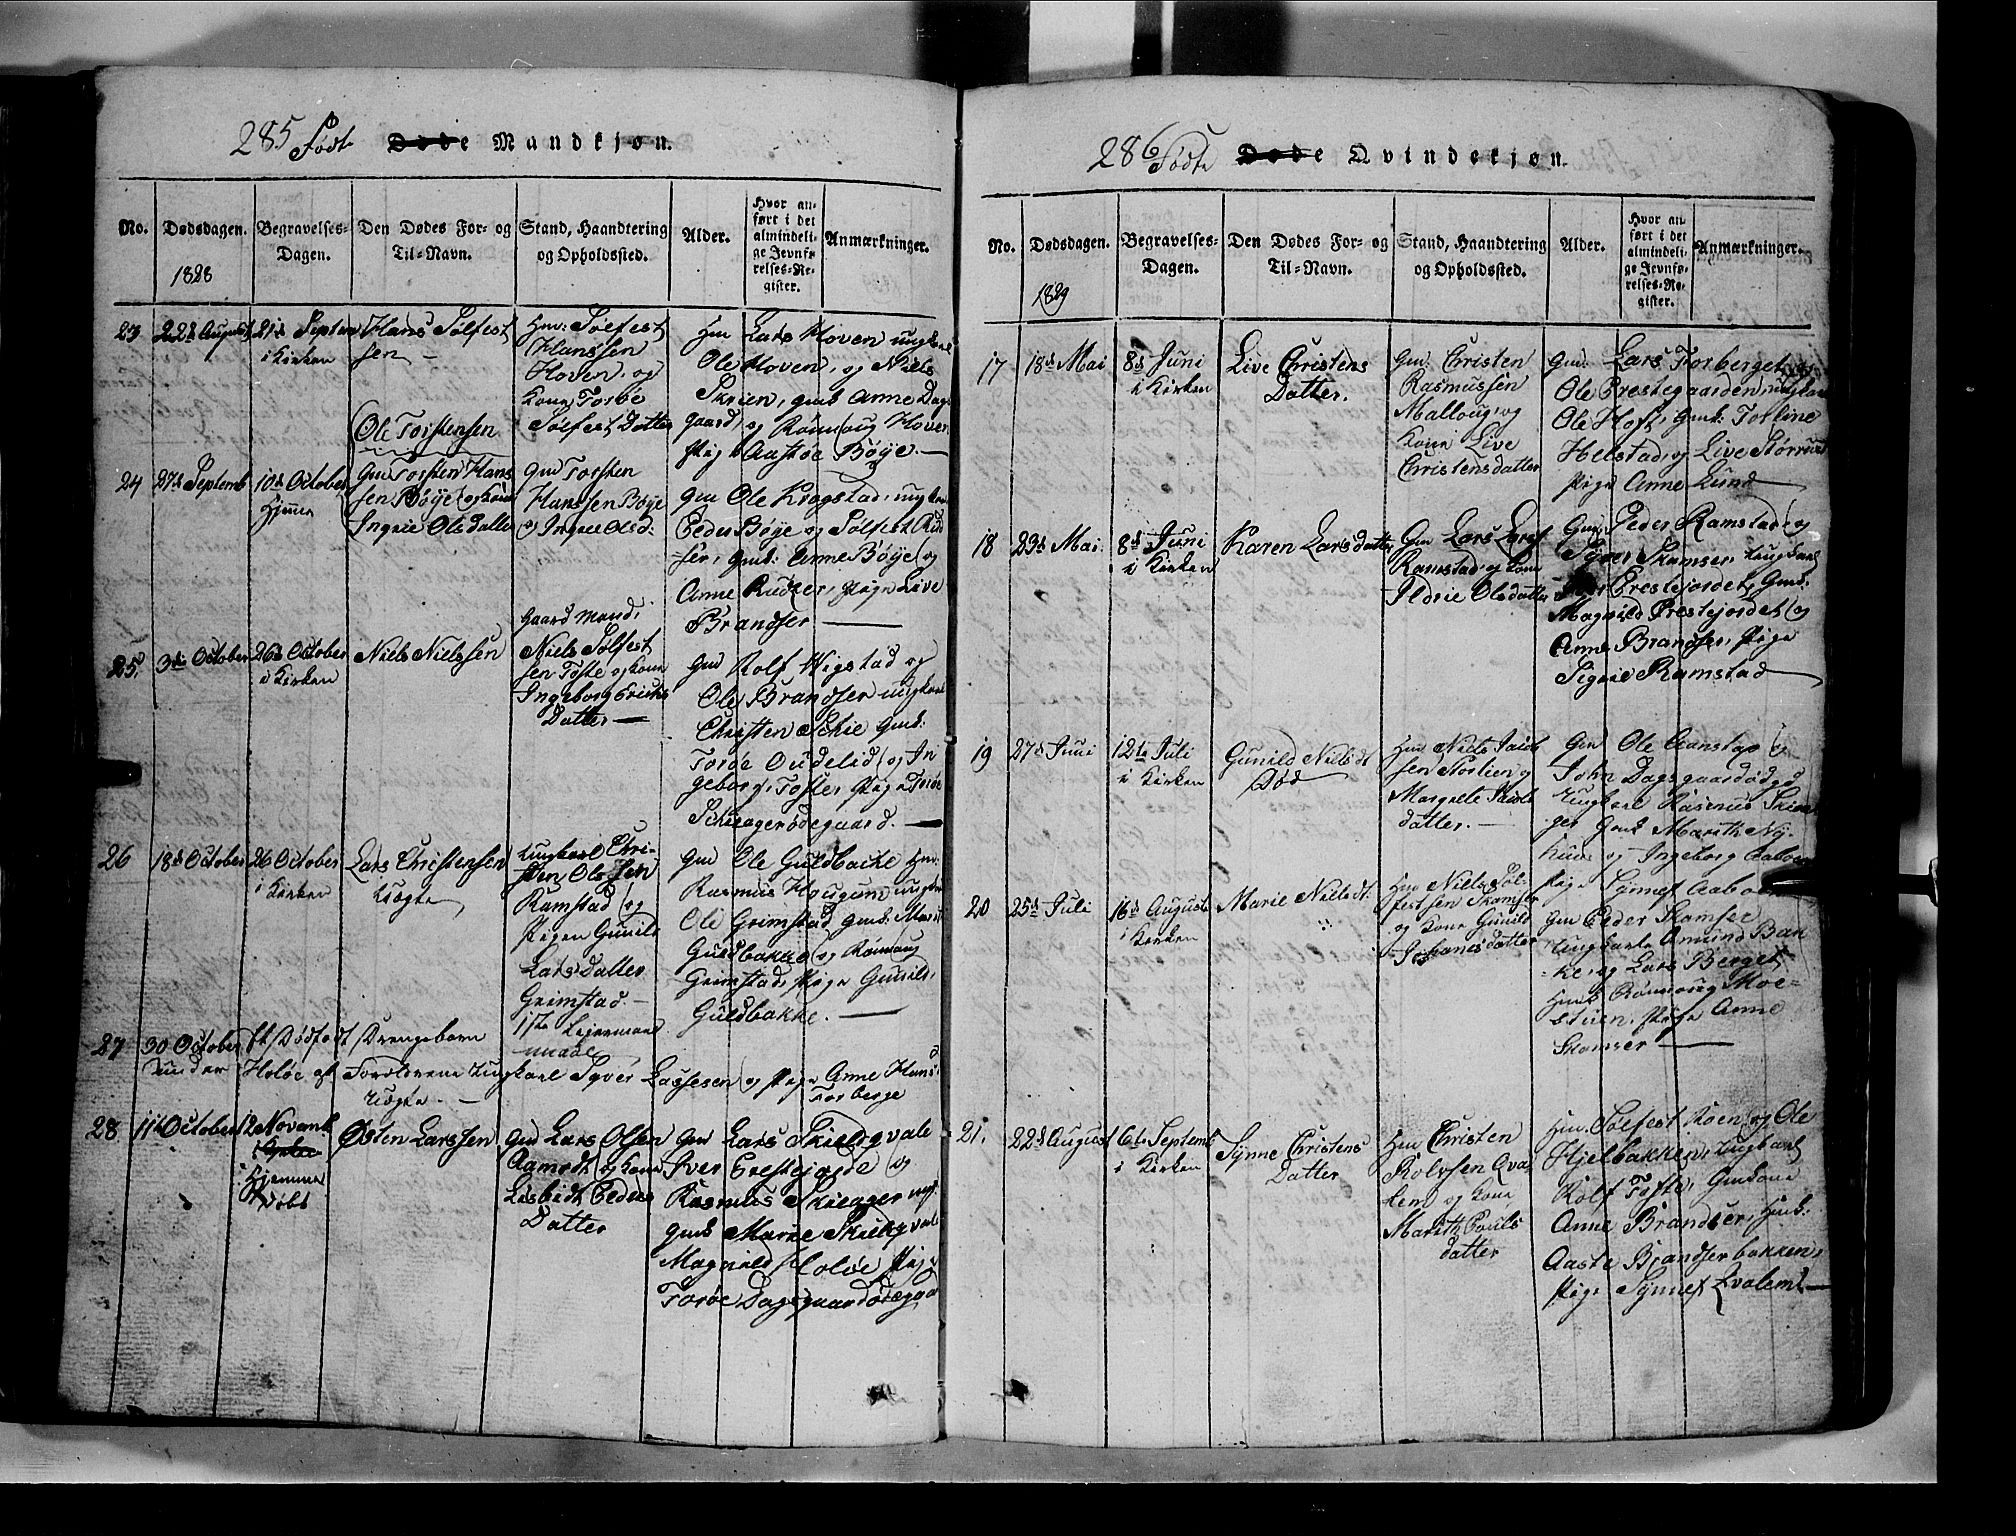 285 Født Døde Mandkjøn.
No. Dødsdagen. Begravelses-Dagen. Den Dødes For- og Til-Navn. Stand, Haandtering og Opholdssted. Alder. Hvor anført i det almindelige Jevnførelses-Register. Anmærkninger.
1828
23 22d August 21d Septem i Kirken
Hans Sølfest
sen
Hm: Sølfest
Hanssen
Hoven og
Kone Torbe
Sølfest Datter
Hm Lars Hoven ungkarl
Ole Hoven, og Niels
Skrien, gmk Anne Dags
gaard, og Rønnoug Hoven
Pige Aastøe Bøye.
24 27d Septemb 10d October Hjemme
Ole Torstensen
Gm Torsten Hans
sen Bøye og Kone
Ingrie Ole datter
Gm Torsten
Hanssen Bøye
og Ingrie Olsd.
Gm Ole Krogstad, ungkarl
Peder Bøye og Sølfest Rud
ser, gmk: Anne Bøye og
Anne Rudser, Pige Live
Brandser
25. 3die October 26d October i Kirken
Niels Nielssen
Gaard Mand,
Niels Sølfest
sen Tofte og Kone
Ingeborg Erichs
Datter
Gm Rolf Wigstad og
Ole Brandser ungkarl
Christen Schie gmk:
Torøe Oudelid og In
geborg Tofte, Pige Torøe
Schieagerødegaard.
26 18d October 26 October i Kirken
Lars Christensen
Uægte
Ungkarl Chri-
sten Olssen
Ramstad og
Pigen Gunild
Larsdatter
Grimstad.
1ste Leiermaal
Gm Ole Guldbacke Hm.
Rasmus Hougum ungkarl
Ole Grimstad gmk: Marit
Guldbakke og Rønnoug
Grimstad, Pige Gunild,
Guldbakke.
27 30 October et Dødfødt Drengebarn
under Holøe af Forældrene Ungkarl Syver Lassesen og Pige Anne Hans
Uægte Forberge
28 11d October 12 Novemb
Hjemme
Døbt
Østen Larssen
Gm Lars Olsen
Aamodt og Kone
Lisbeth Peders
Datter
Gm Lars Skieldqvale
Iver Prestejorde og
Rasmus Skieager
gmk Marie Skieldqvale
Magnild Holøe Pige
Torøe Dagsgaardødegaa
286 Fødte Døde Qvindekjøn.
No. Dødsdagen. Begravelses-Dagen. Den Dødes For- og Til-Navn. Stand, Haandtering og Opholdssted. Alder. Hvor anført i det almindelige Jevnførelses-Register. Anmærkninger.
1829
17 18d Mai 8d Juni i Kirken
Live Christens
Datter.
Gm: Christen
Rasmussen
Malloug, og
Kone Live
Christensdatter
Gm: Lars Forberget
Ole Prestegaarden, ungkarl
Ole Hoft, gmk: Torline
Helstad, og Live Størrust
Pige Anne Lund
18 23d Mai 8d Juni i Kirken
Karen Larsdatter
Gm Lars Lars
Ramstad, og Kone
Ildrie Olsdatter
Gm: Peder Ramstad og
Syver Skamser, Ungkarl
Prestejordet, Gmk.
Magnild Prestejordet og
Anne Brandser, Pige
Sigrie Ramstad
19 27d Juni 12te Juli i Kirken
Gunild Nielsdt
Død
Hm Niels Jacob
sen Stostien og
Margrete Jacobs
datter.
Gm Ole Aanstap og
John Dagsgaardødgd
Ungkarl Rasmus Skiea
ger Gmk Marith Ny-
kuus og Ingeborg Aaboen
Pige Synnef Aaboen
20 25d Juli 16d August i Kirken
Marie Nielsdt.
Hm Niels Søl-
festsen Skamser
og Kone Gunild
Johannesdatter
Gm Peder Skamser
Ungkarle Amund Bak
ke, og Lars Berget
Hmk Rønnoug Moe-
stuen. Pige Anne
Skamser
21. 22d August 6te Septemb i Kirken
Synne Christens
Datter
Hm Christen
Rolvsen Qva
len, og Kone
Marith Pouls
datter
Hm. Sølfest Roen, og Ole
Hjelbakken, Ungkarl
Rolf Tofte, Gmkone
Anne Brandser, Hmk.
Aaste Brandserbakken,
Pige Synnef Qvalem